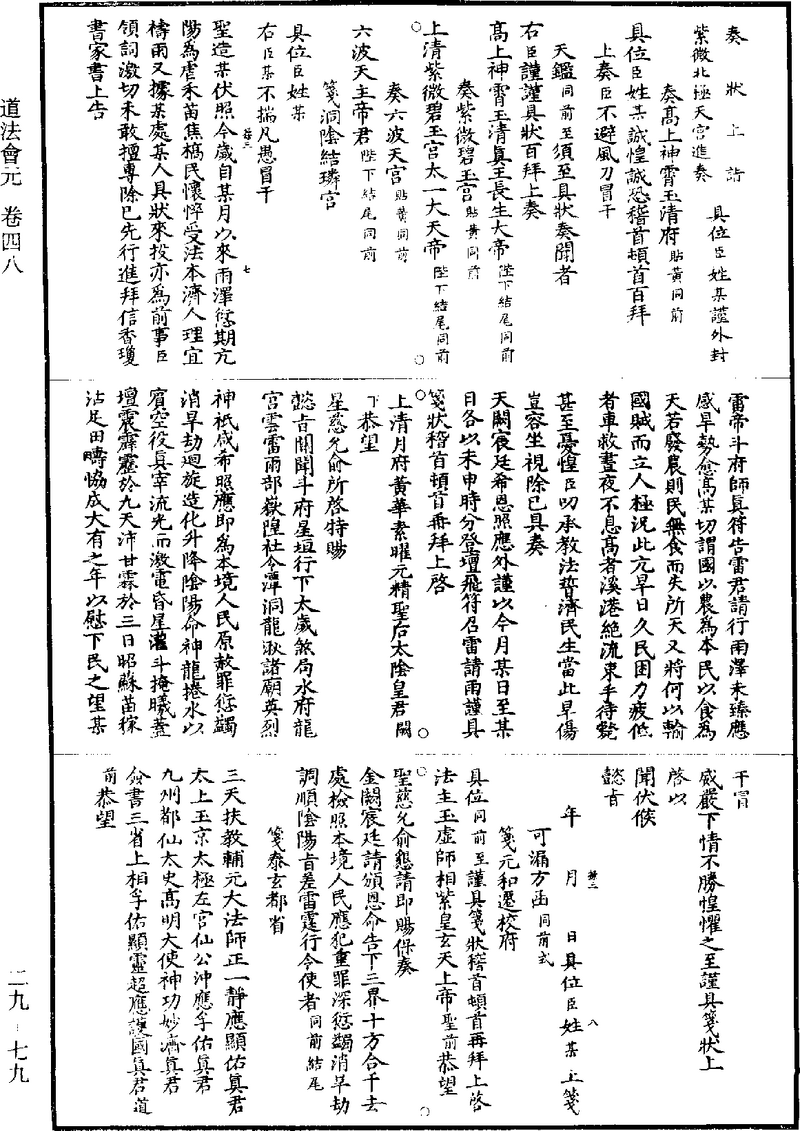 道法會元　卷四八
二九－七九
奏狀上詣
紫微北極天宮進奏　具位臣姓某謹外封
奏高上神霄玉清府貼黃同前
具位臣姓某誠惶誠恐稽首頓首百拜
上奏臣不避風刀冒干
天鑑同前至須至具狀奏聞者
右臣謹謹具狀百拜上奏
高上神霄玉清真王長生大帝陛下結尾同前
奏紫微碧玉宮貼黃同前
上清紫微碧玉宮太一大天帝陛下結尾同前
奏六波天宮貼黃同前
六波天主帝君陛下結尾同前
箋洞陰結璘宮
具位臣姓某
右臣某不揣凡愚冒干
聖造某伏照今歲自某月以來雨澤愆期亢
陽為虐禾苗焦槁民懷悴受法本濟人理宜
禱雨又據某處某人具狀來投亦為前事臣
領詞激切未敢擅專除已先行進拜信香瓊
書家書上告
雷帝斗府師真符告雷君請行雨澤未臻應
感旱勢愈高某切謂國以農為本民以食為
天若廢農則民無食而失所天又將何以輸
國賦而立人極況此亢旱日久民困力疲低
者車救晝夜不息高者溪港絕流束手待斃
甚至憂惶臣叨承教法誓濟民生當此旱傷
豈容坐視除已具奏
天闕宸廷希恩照應外謹以今月某日至某
日各以未申時分登壇飛符召雷請雨謹具
箋狀稽首頓首再拜上啓
上清月府黃華素曜元精聖后太陰皇君闕
下恭望
星慈允俞所啓特賜
懿旨關聞斗府星垣行下太歲煞局水府龍
宮雲雷雨部嶽隍社令潭洞龍湫諸廟英烈
神祇咸希照應即為本境人民原赦罪愆蠲
消旱劫迴旋造化升降陰陽命神龍捲水以
賓空役真宰流光而激電昏星灌斗掩曦蓋
壇震霹靂於九天沛甘霖於三日昭蘇苗稼
沾足田疇恊成大有之年以慰下民之望某
干冒
威嚴下情不勝惶懼之至謹具箋狀上
啓以
聞伏候
懿旨
年　月　日具位臣姓某上箋
可漏方函同前式
箋元和遷校府
具位同前至謹具箋狀稽首頓首再拜上啓
法主玉虛師相紫皇玄天上帝聖前恭望
聖慈允俞懇請即賜保奏
金闕宸廷請頒恩命告下三界十方合干去
處檢照本境人民應犯重罪深愆蠲消旱劫
調順陰陽旨差雷霆行令使者同前結尾
箋泰玄都省
三天扶教輔元大法師正一靜應顯佑真君
太上玉京太極左宮仙公沖應孚佑真君
九州都仙太史高明大使神功妙濟真君
僉書三省上相孚佑顯靈超應護國真君道
前恭望